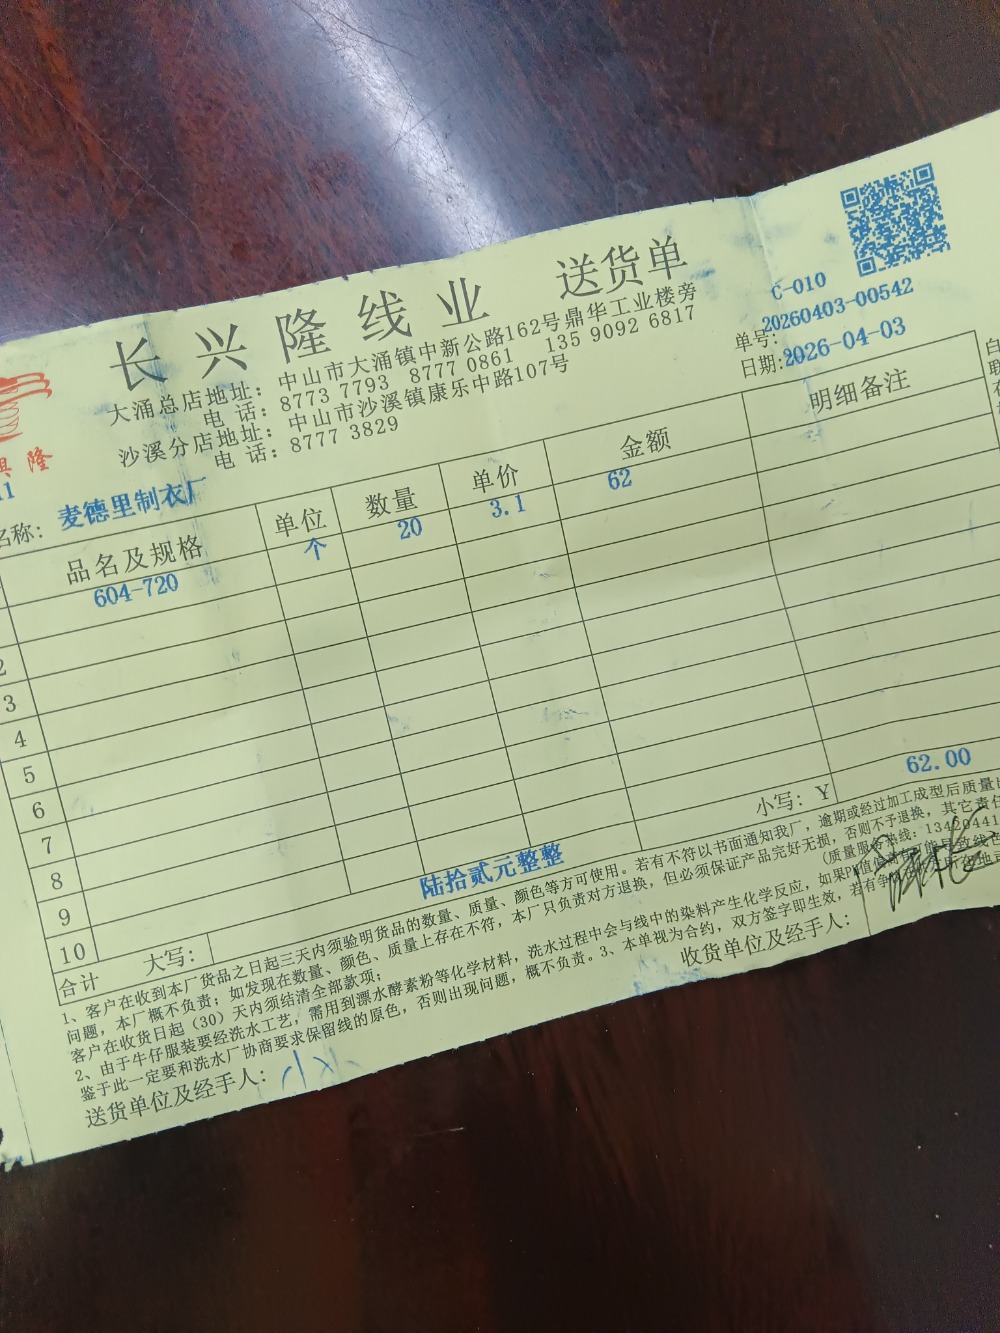 长兴隆线业 送货单
C-010
大涌总店地址：中山市大涌镇中新公路162号鼎华工业楼旁
电 话：8773 7793 8777 0861 135 9092 6817
沙溪分店地址：中山市沙溪镇康乐中路107号
电 话：8777 3829
单号：20260403-00542
日期：2026-04-03
隆
名称：麦德里制衣厂
品名及规格 单位 数量 单价 金额 明细备注
604-720 个 20 3.1 62
2
3
4
5
6
7
8
9
10
合计 大写：陆拾贰元整整 小写：Y 62.00
1、客户在收到本厂货品之日起三天内须验明货品的数量、质量、颜色等方可使用。若有不符以书面通知我厂，逾期或经过加工成型后质量
问题，本厂概不负责；如发现在数量、颜色、质量上存在不符，本厂只负责对方退换，但必须保证产品完好无损，否则不予退换，其它责任
客户在收货日起（30）天内须结清全部款项；
（质量服务热线：
2、由于牛仔服装要经洗水工艺，需用到漂水酵素粉等化学材料，洗水过程中会与线中的染料产生化学反应，如果PH值偏
鉴于此一定要和洗水厂协商要求保留线的原色，否则出现问题，概不负责。3、本单视为合约，双方签字即生效，若有争
送货单位及经手人：
收货单位及经手人：